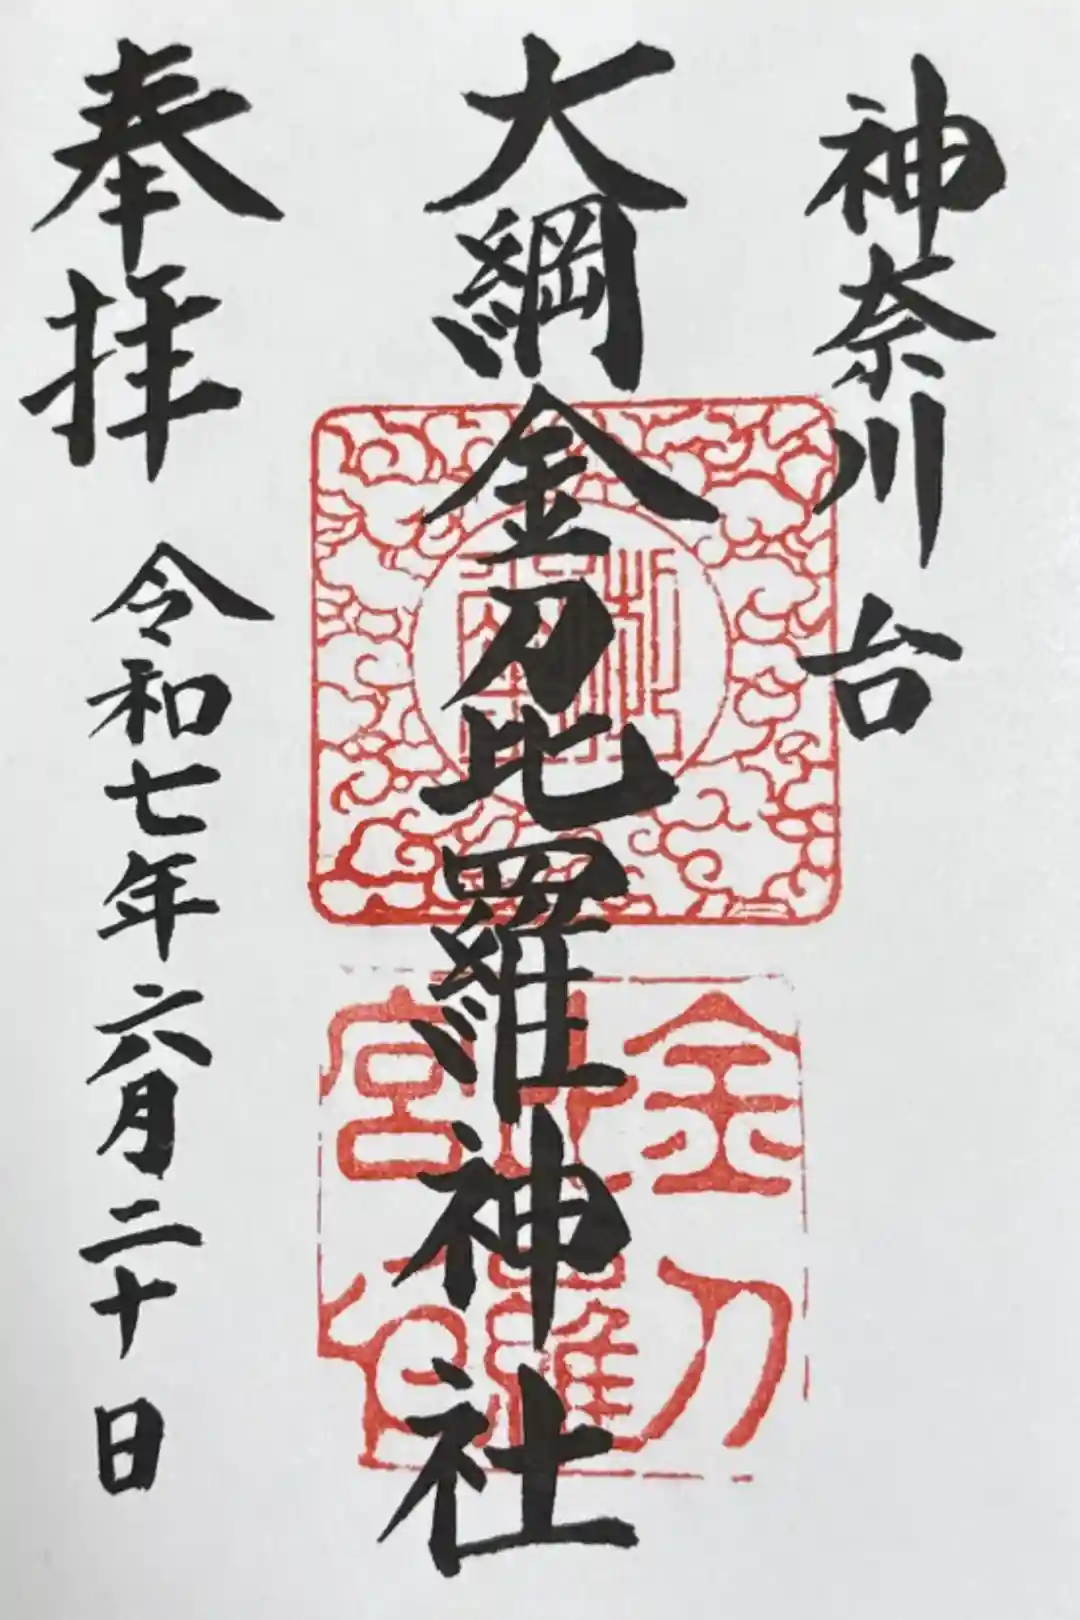 神奈川台
大綱金刀比羅神社
奉拝
令和七年六月二十日
金刀
比羅
宮